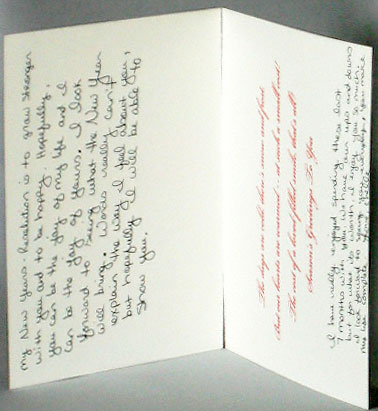 My New Years - Resolution is to grow stronger
with you and to be happy. Hopefully,
you can be the joy of my life and I
can be the joy of yours. I look
forward to seeing what the New Year
will bring. Words really can't
explain the way I feel about you,
but hopefully I will be able to
show you.
The days are cold, there's snow and frost
And our hearts are warmed - at such a small cost
The cost of a heart filled with, cheer all!
Season's Greetings To You
I have really enjoyed spending these last
7 months with you. We have our ups and downs
but for what its worth I enjoy you so much.
I look forward to you make
my life complete. Love,